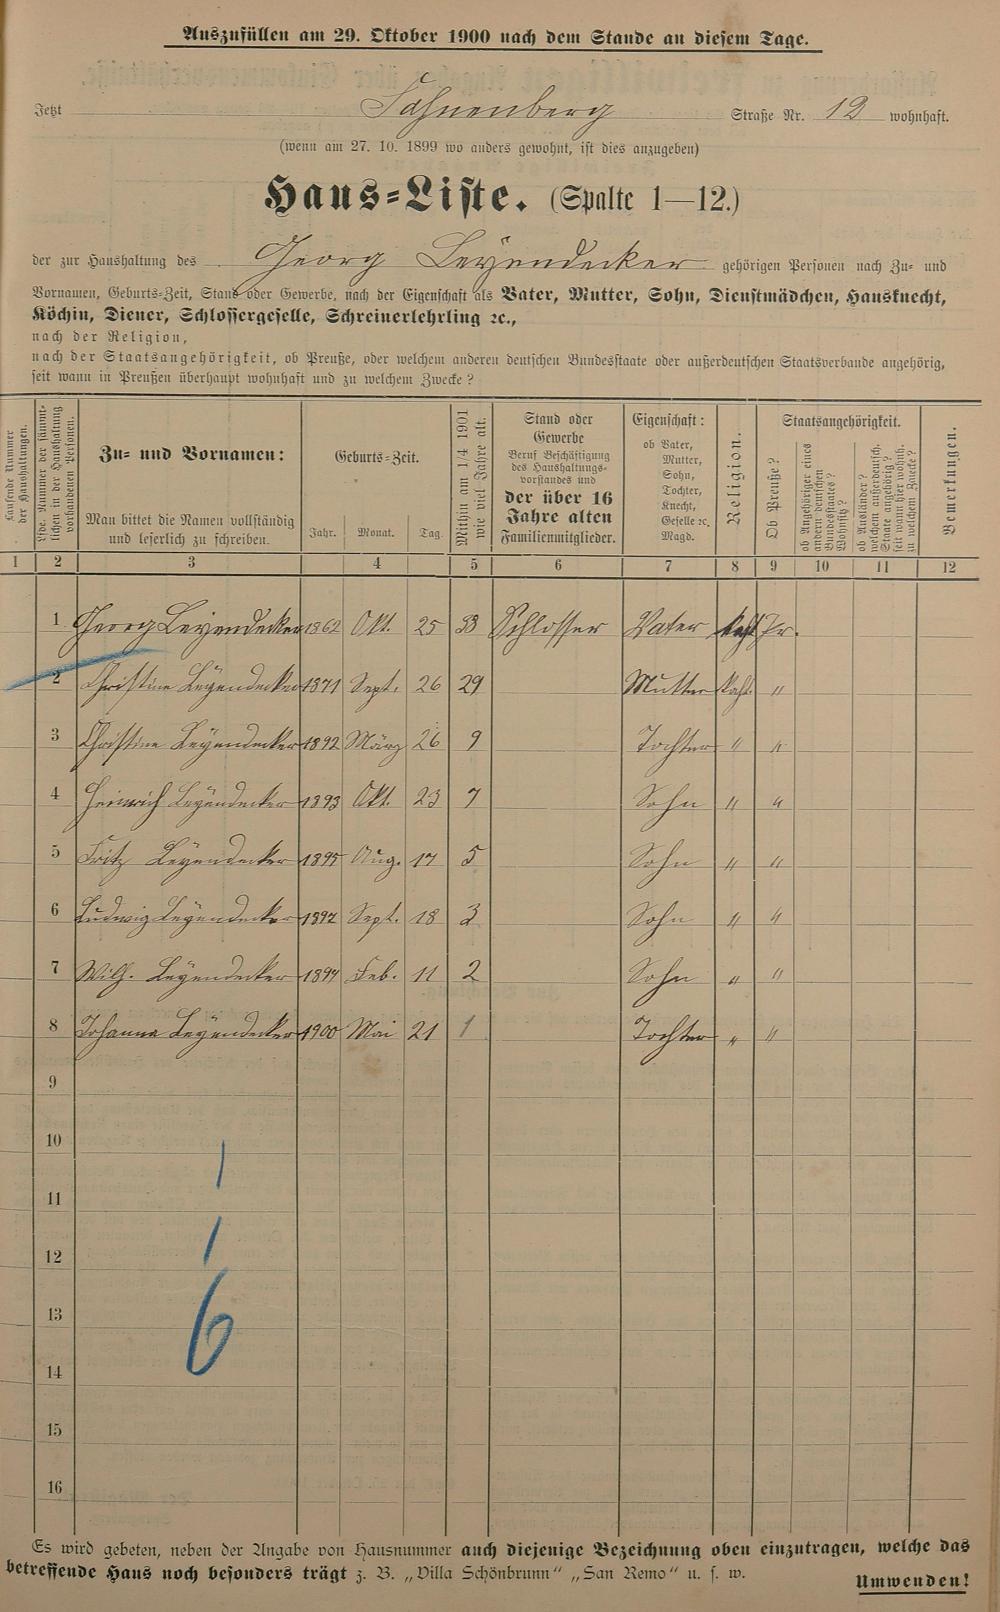 Auszufüllen am 29. Oktober 1900 nach dem Stande an diesem Tage.
Jetzt Straße Nr. 12 wohnhaft.
(wenn am 27. 10. 1899 wo anders gewohnt, ist dies anzugeben)
Haus-Liste. (Spalte 1—12.)
der zur Haushaltung des Georg Leyendecker gehörigen Personen nach Zu- und
Vornamen, Geburts-Zeit, Stand oder Gewerbe, nach der Eigenschaft als Vater, Mutter, Sohn, Dienstmädchen, Hausknecht,
Köchin, Diener, Schlossergeselle, Schreinerlehrling ꝛc.,
nach der Religion,
nach der Staatsangehörigkeit, ob Preuße, oder welchem anderen deutschen Bundesstaate oder außerdeutschen Staatsverbande angehörig,
seit wann in Preußen überhaupt wohnhaft und zu welchem Zwecke?
Laufende Nummer
der Haushaltungen.
Lfde. Nummer der sämmt-
lichen in der Haushaltung
vorhandenen Personen.
Zu- und Vornamen:
Man bittet die Namen vollständig
und leserlich zu schreiben.
Geburts-Zeit.
Jahr. Monat. Tag.
Mithin am 1/4 1901
wie viel Jahre alt.
Stand oder
Gewerbe
Beruf Beschäftigung
des Haushaltungs-
vorstandes und
der über 16
Jahre alten
Familienmitglieder.
Eigenschaft:
ob Vater,
Mutter,
Sohn,
Tochter,
Knecht,
Geselle ꝛc.
Magd.
Religion.
Staatsangehörigkeit.
Ob Preuße?
ob Angehöriger eines
andern deutschen
Bundesstaates?
Wohnsitz?
ob Ausländer?
welchem außerdeutsch.
Staate angehörig?
seit wann hier wohnh.
zu welchem Zwecke?
Bemerkungen.
1 2 3 4 5 6 7 8 9 10 11 12
1 Georg Leyendecker 1862 Okt. 25 38 Schlosser Vater kath. Pr.
2 Christine Leyendecker 1871 Sept. 26 29 Mutter kath. "
3 Christine Leyendecker 1892 März 26 9 Tochter " "
4 Heinrich Leyendecker 1893 Okt. 23 7 Sohn " "
5 Fritz Leyendecker 1895 Aug. 17 5 Sohn " "
6 Ludwig Leyendecker 1897 Sept. 18 3 Sohn " "
7 Wilh. Leyendecker 1899 Feb. 11 2 Sohn " "
8 Johanna Leyendecker 1900 Mai 21 1 Tochter " "
9
10
11
12
13
6
14
15
16
Es wird gebeten, neben der Angabe von Hausnummer auch diejenige Bezeichnung oben einzutragen, welche das
betreffende Haus noch besonders trägt z. B. „Villa Schönbrunn“ „San Remo“ u. s. w.
Umwenden!